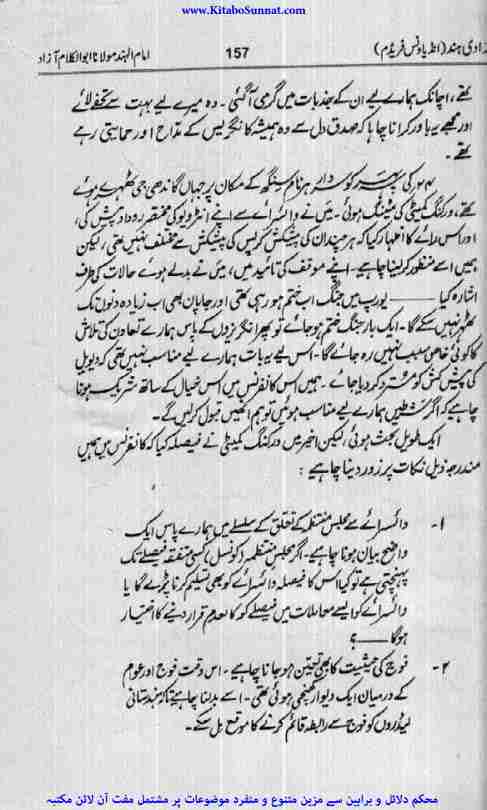 www.KitaboSunnat.com
زادی ہند (انڈیا ونس فریڈم) 157 امام الہند مولانا ابوالکلام آزاد
تھے، اچانک ہمارے لیے ان کے جذبات میں گرمی آگئی۔ وہ میرے لیے بہت سے تحفے لائے
اور مجھے یہ باور کرانا چاہا کہ صدق دل سے وہ ہمیشہ کانگریس کے مداح اور حمایتی رہے
تھے۔
۲۴ کی سہ پہر کو سردار ہرنام سنگھ کے مکان پر جہاں گاندھی جی ٹھہرے ہوئے
تھے، ورکنگ کمیٹی کی میٹنگ ہوئی۔ میں نے وائسرائے سے اپنے انٹرویو کی مختصر روداد پیش کی،
اور اس رائے کا اظہار کیا کہ ہر چند ان کی پیشکش کرپس کی پیشکش سے مختلف نہیں تھی، لیکن
ہمیں اسے منظور کر لینا چاہیے۔ اپنے موقف کی تائید میں، میں نے بدلے ہوئے حالات کی طرف
اشارہ کیا ——— یورپ میں جنگ اب ختم ہو رہی تھی اور جاپان بھی اب زیادہ دنوں تک
ٹھہر نہیں سکے گا۔ ایک بار جنگ ختم ہو جائے تو پھر انگریزوں کے پاس ہمارے تعاون کی تلاش
کا کوئی خاص سبب نہیں رہ جائے گا۔ اس لیے یہ بات ہمارے لیے مناسب نہیں تھی کہ ویول
کی پیش کش کو مسترد کر دیا جائے۔ ہمیں اس کانفرنس میں اس خیال کے ساتھ شریک ہونا
چاہیے کہ اگر شرطیں ہمارے لیے مناسب ہوئیں تو ہم انھیں قبول کر لیں گے۔
ایک طویل بحث ہوئی، لیکن اخیر میں ورکنگ کمیٹی نے فیصلہ کیا کہ کانفرنس میں ہمیں
مندرجہ ذیل نکات پر زور دینا چاہیے :
۱۔ وائسرائے سے مجلس منتظمہ کے تعلق کے سلسلے میں ہمارے پاس ایک
واضح بیان ہونا چاہیے۔ اگر مجلس منتظمہ (کونسل) کسی متفقہ فیصلے تک
پہنچتی ہے تو کیا اس کا فیصلہ وائسرائے کو بھی تسلیم کرنا پڑے گا یا
وائسرائے کو ایسے معاملات میں فیصلے کو کالعدم قرار دینے کا اختیار
ہوگا ——؟
۲۔ فوج کی حیثیت کا بھی تعین ہو جانا چاہیے۔ اس وقت فوج اور عوام
کے درمیان ایک دیوار کھنچی ہوئی تھی۔ اسے بدلنا چاہیے تاکہ ہندستانی
لیڈروں کو فوج سے رابطہ قائم کرنے کا موقع مل سکے۔
محکم دلائل و براہین سے مزین متنوع و منفرد موضوعات پر مشتمل مفت آن لائن مکتبہ